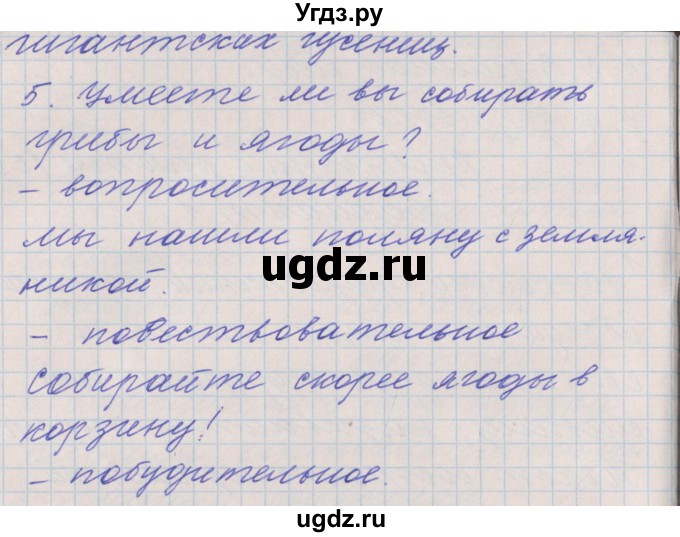 Угдз.ру
гигантсках гусениц.
5. Умеете ли вы собирать
грибы и ягоды?
- вопросительное.
мы нашли поляну с земля-
никой.
ugdz.ru
- повествовательное
собирайте скорее ягоды в
корзину!
- побудительное.
ugdz.ru